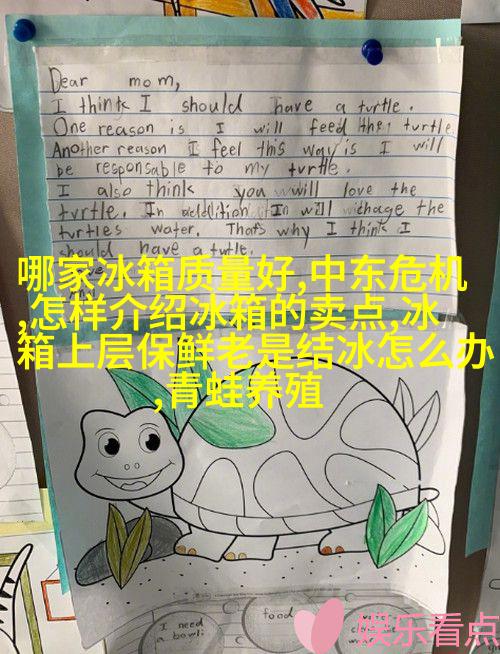 Dear mom,
I think I should have a turtle.
One reason is I will feed the turtle
Another reason I feel this way is I will
be responsable to my turtle.
I also think you will love the
turtle. In addition I will chage the
turtles water. That's why I think I
should have a tutle.
哪家冰箱质量好,中东危机
,怎样介绍冰箱的卖点,冰
箱上层保鲜老是结冰怎么办
,青蛙养殖
I need
a bowl
food
娱乐看点